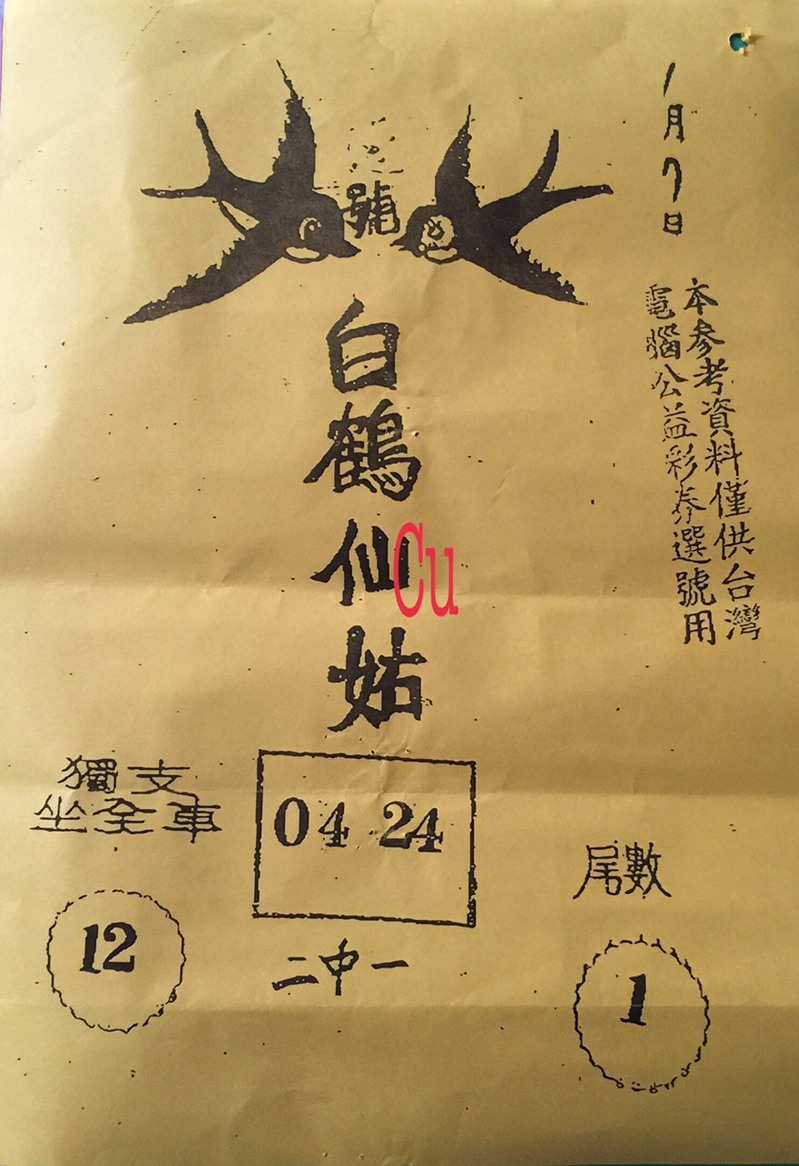 1月7日
號
本參考資料僅供台灣
電腦公益彩券選號用
白鶴仙姑
Cu
獨支
坐全車
12
04 24
二中一
尾數
1